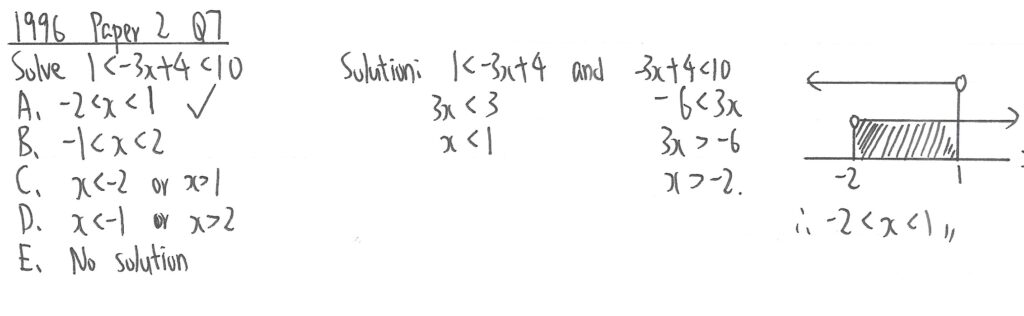 1996 Paper 2 Q7
Solve 1<-3x+4<10
A. -2<x<1 ✓
B. -1<x<2
C. x<-2 or x>1
D. x<-1 or x>2
E. No solution
Solution: 1<-3x+4 and -3x+4<10
3x<3 -6<3x
x<1 3x>-6
x>-2.
-2 1
∴ -2<x<1 〃